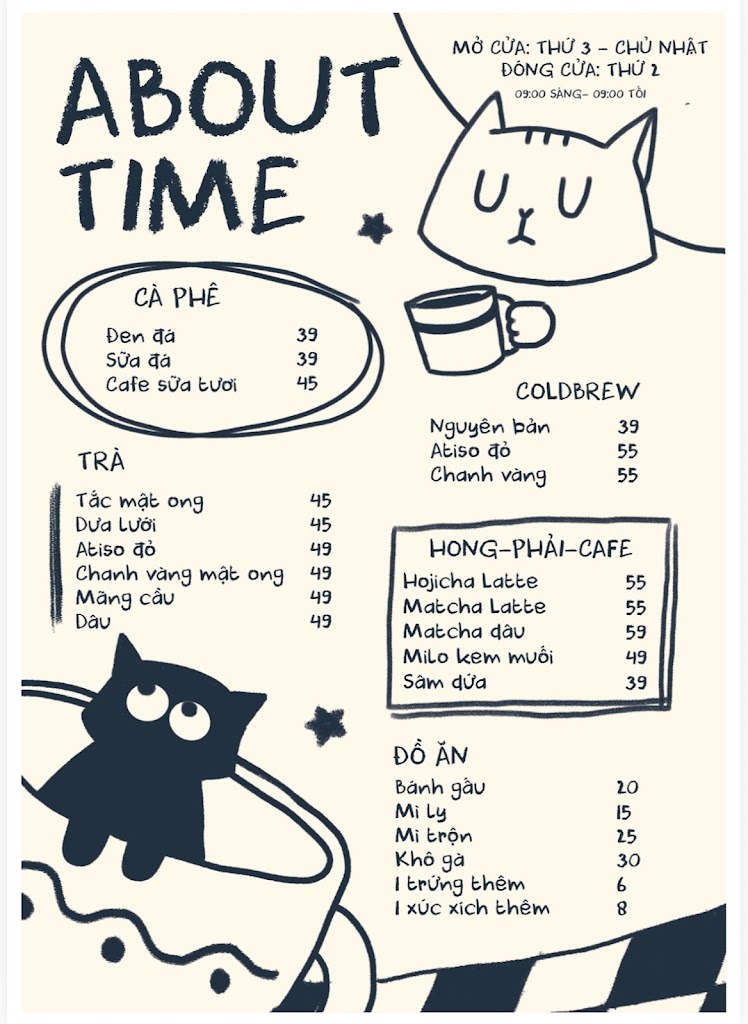 ABOUT
TIME
MỞ CỬA: THỨ 3 - CHỦ NHẬT
ĐÓNG CỬA: THỨ 2
09:00 SÁNG- 09:00 TỐI
CÀ PHÊ
Đen đá 39
Sữa đá 39
Cafe sữa tươi 45
COLDBREW
Nguyên bản 39
Atiso đỏ 55
Chanh vàng 55
TRÀ
Tắc mật ong 45
Dưa lưới 45
Atiso đỏ 49
Chanh vàng mật ong 49
Mãng cầu 49
Dâu 49
HONG-PHẢI-CAFE
Hojicha Latte 55
Matcha Latte 55
Matcha dâu 59
Milo kem muối 49
Sâm dứa 39
ĐỒ ĂN
Bánh gấu 20
Mì ly 15
Mì trộn 25
Khô gà 30
1 trứng thêm 6
1 xúc xích thêm 8